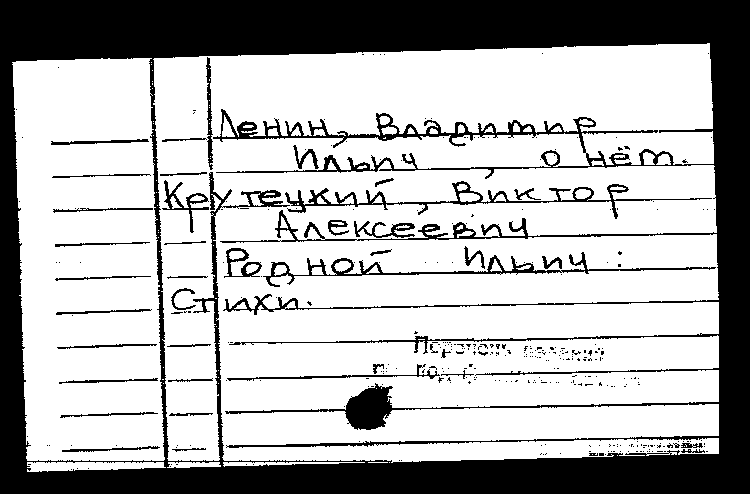 Ленин, Владимир
Ильич , о нём.
Крутецкий, Виктор
Алексеевич
Родной Ильич :
Стихи.
Перечень изданий
под